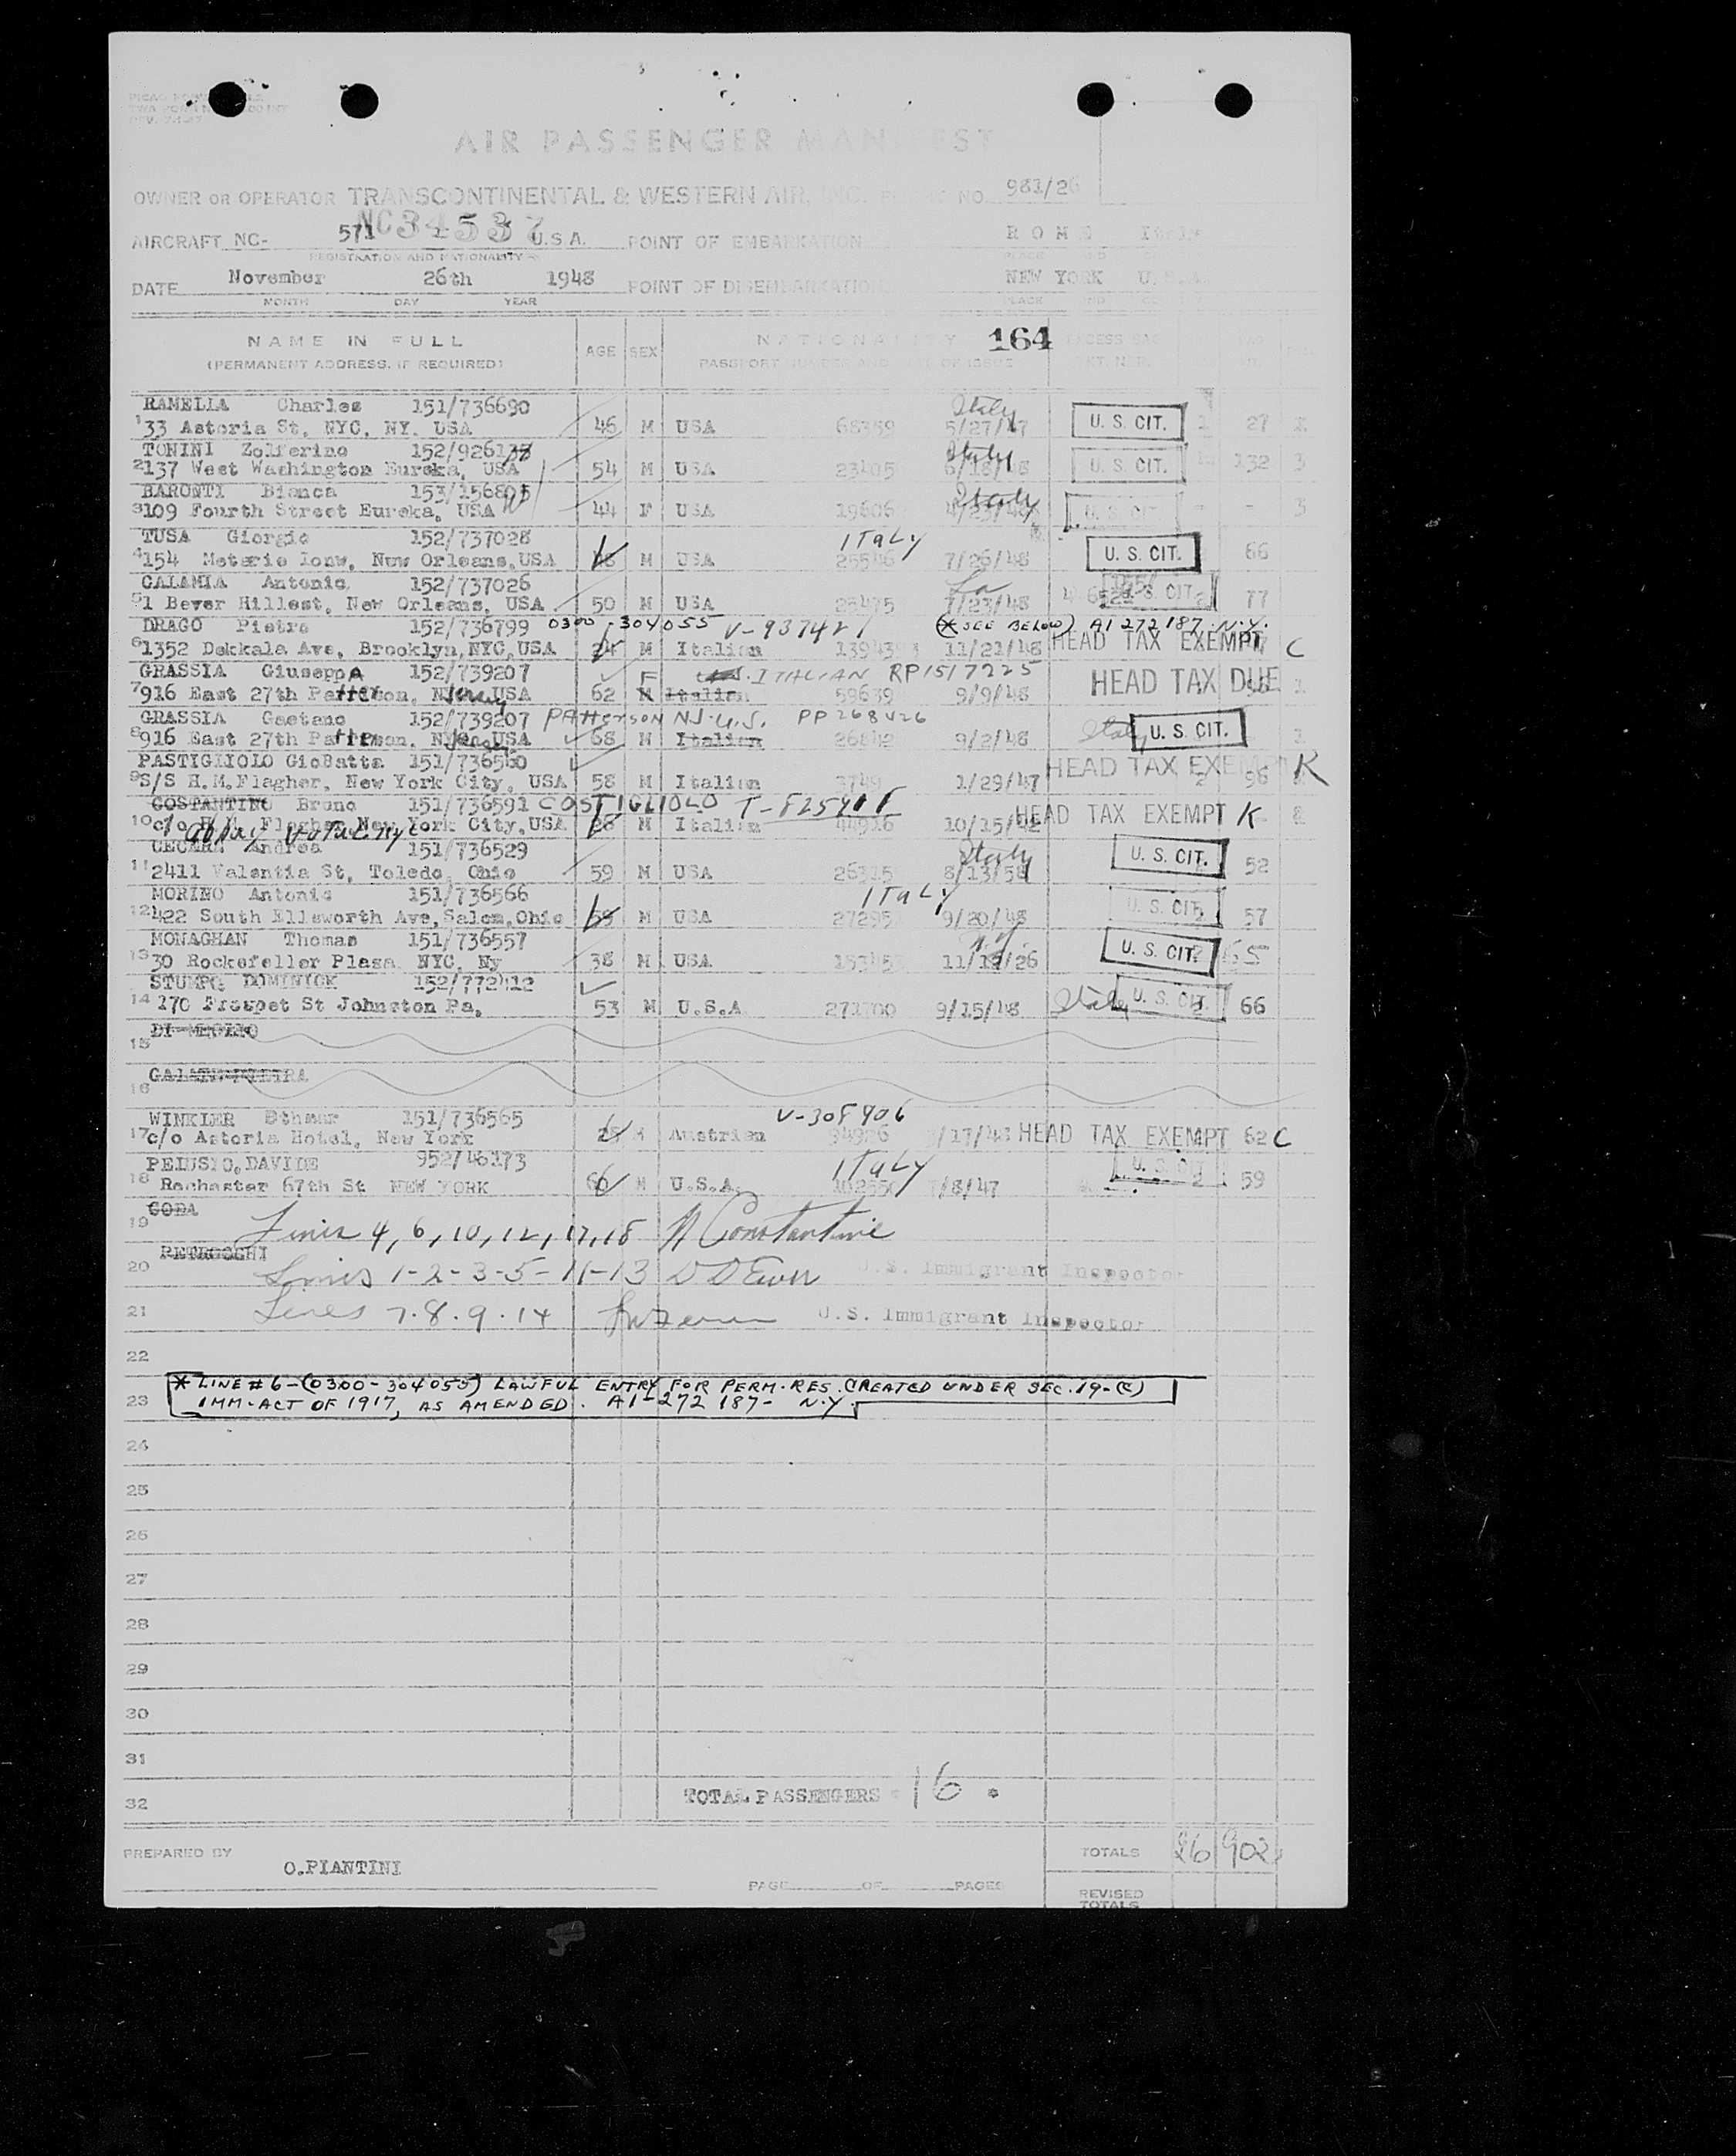 AIR PASSENGER MANIFEST
OWNER OR OPERATOR TRANSCONTINENTAL & WESTERN AIR, INC. NO. 981/26
AIRCRAFT NC- 571 NC34537 U.S.A. POINT OF EMBARKATION ROME Italy
REGISTRATION AND NATIONALITY PLACE AND
DATE November 26th 1948 POINT OF DISEMBARKATION NEW YORK U.S.A.
MONTH DAY YEAR PLACE AND
NAME IN FULL AGE SEX NATIONALITY 164 EXCESS
(PERMANENT ADDRESS, IF REQUIRED) PASSPORT NUMBER AND OF ISSUE
RAMELLA Charles 151/736690 Italy
1 33 Astoria St, NYC, NY. USA 46 M USA 68359 5/27/47 U. S. CIT. 27
TONINI Zolferino 152/926137 Italy
2 137 West Washington Eureka, USA 54 M USA 23405 6/18/48 U. S. CIT. 132 3
BARONTI Bianca 153/156805 Italy
3 109 Fourth Street Eureka, USA 44 F USA 19606 4/23/48 U. S. CIT - - 3
TUSA Giorgio 152/737028 ITALY
4 154 Metarie lonw, New Orleans, USA 48 M USA 25546 7/26/48 U. S. CIT. 66
CALAMIA Antonio 152/737026 La
5 1 Bever Hillest, New Orleans, USA 50 M USA 25475 7/23/48 U. S. CIT. 2 77
DRAGO Pietro 152/736799 0300-304055 V-937421 (* SEE BELOW) A1 272 187 N.Y.
6 1352 Dekkala Ave, Brooklyn, NYC, USA 24 M Italian 11/21/48 HEAD TAX EXEMPT C
GRASSIA GiuseppA 152/739207 F ITALIAN RP1517225
7 916 East 27th Patterson, N Jersey USA 62 M Italian 59639 9/9/48 HEAD TAX DUE 1
GRASSIA Gaetano 152/739207 PATTERSON NJ. U.S. PP 268426
8 916 East 27th Patterson, N Jersey USA 68 M Italian 26842 9/2/48 Italy U. S. CIT. 1
PASTIGIIOLO GioBatta 151/736560
9 S/S H.M.Flagher, New York City, USA 58 M Italian 3749 1/29/47 HEAD TAX EXEMPT 2 96 K
COSTANTINO Bruno 151/736591 COSTIGLIOLO T-825918
10 c/o H.M. Flagher New York City, USA 28 M Italian 44916 10/15/42 HEAD TAX EXEMPT K
Andrea 151/736529 Italy
11 2411 Valentia St, Toledo, Ohio 59 M USA 26315 8/13/58 U. S. CIT. 52
MORINO Antonio 151/736566 ITALY
12 422 South Ellsworth Ave, Salem, Ohio 55 M USA 27295 9/20/48 U. S. CIT. 57
MONAGHAN Thomas 151/736557 N.Y.
13 30 Rockefeller Plaza NYC, Ny 38 M USA 11/12/26 U. S. CIT. 65
STUMPO DOMINICK 152/772412
14 170 Prospet St Johnston Pa. 53 M U.S.A 271700 9/15/48 Italy U. S. CIT. 66
15 DI
16
WINKLER Othmar 151/736565 V-308906
17 c/o Astoria Hotel, New York 28 M Austrian 94926 /17/48 HEAD TAX EXEMPT 62 C
PELUSIO, DAVIDE 952/46173 ITALY
18 Rochester 67th St NEW YORK 66 M U.S.A. 7/8/47 U. S. CIT 2 59
19 CODA
Lines 4, 6, 10, 12, 17, 18 A Constantine
20 PETROCCHI
Lines 1-2-3-5-11-13 D D Ewen U.S. Immigrant Inspector
21 Lines 7.8.9.14 U.S. Immigrant Inspector
22
* LINE #6-(0300-304055) LAWFUL ENTRY FOR PERM. RES. CREATED UNDER SEC. 19-(C)
23 IMM. ACT OF 1917, AS AMENDED. A1-272 187- N.Y.
24
25
26
27
28
29
30
31
32 TOTAL PASSENGERS 16
PREPARED BY O.PIANTINI TOTALS 26 902
PAGE OF PAGES
REVISED
TOTALS